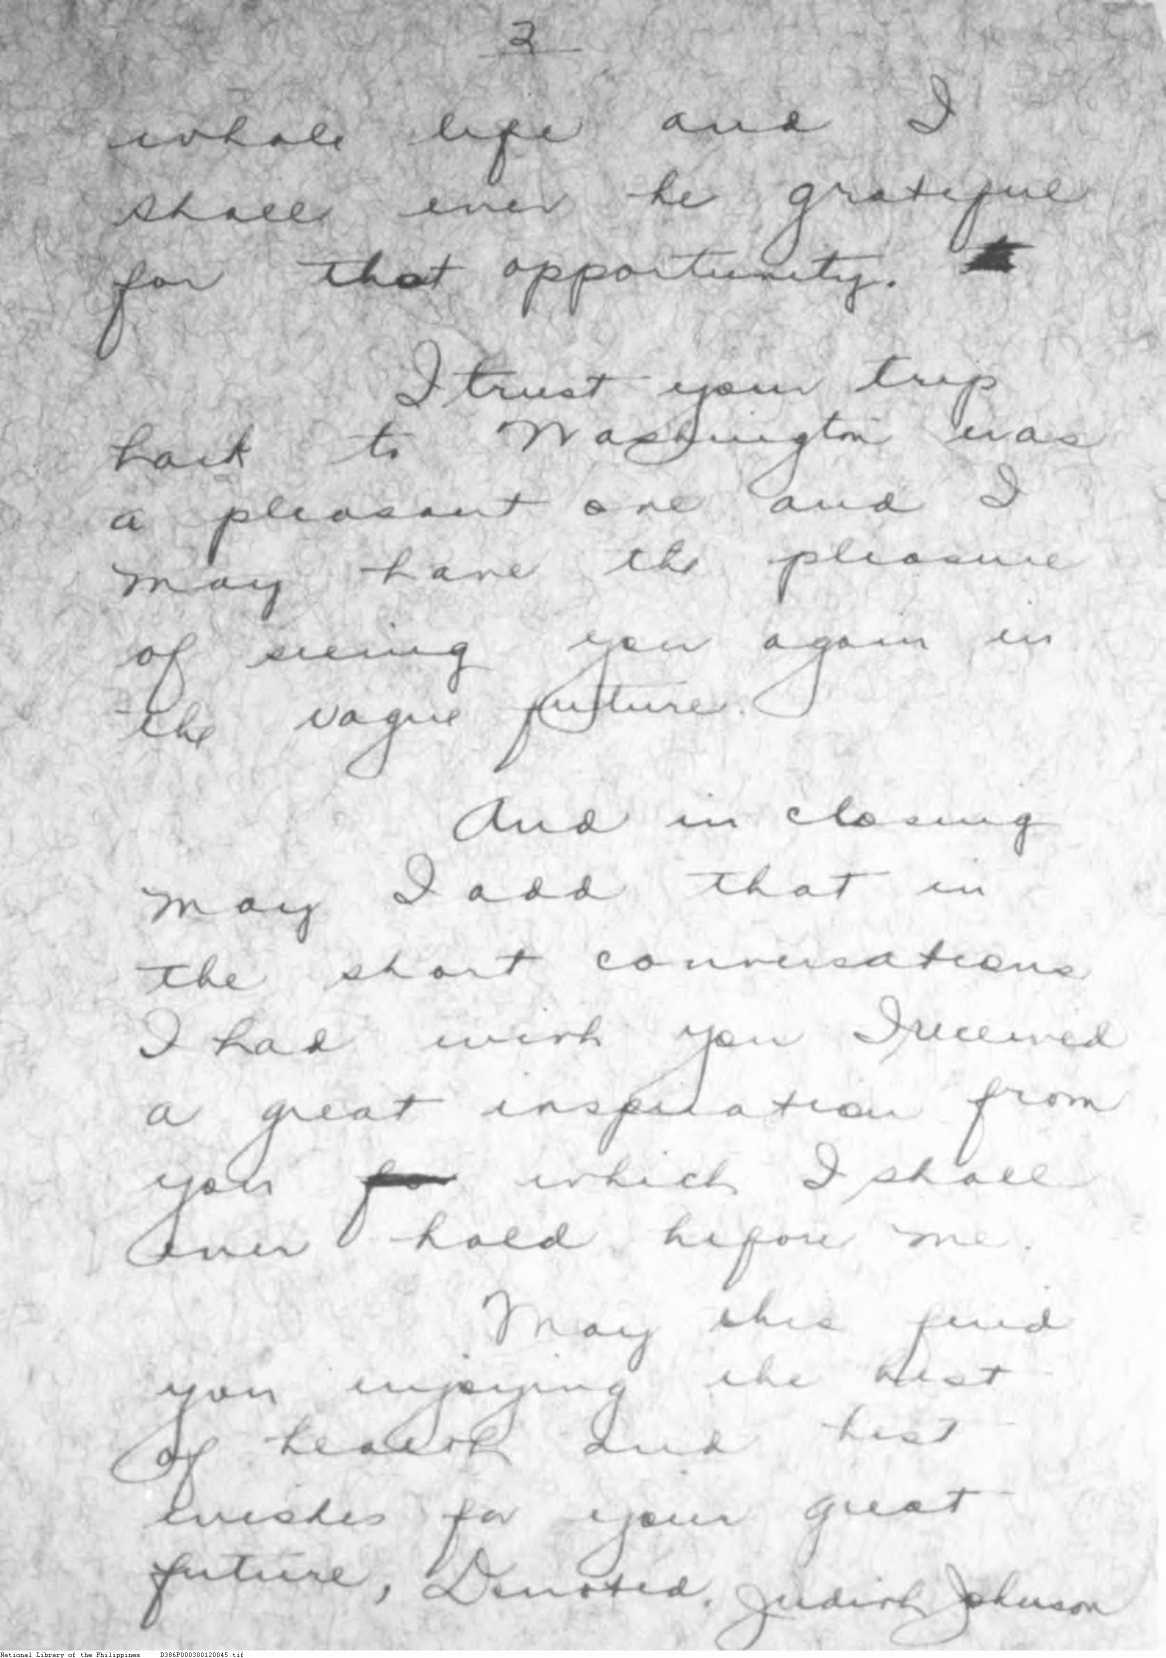 3
whole life and I
shall ever be grateful
for that opportunity.
I trust your trip
back to Washington was
a pleasant one and I
may have the pleasure
of seeing you again in
the vague future.
And in closing
may I add that in
the short conversations
I had with you I received
a great inspiration from
you which I shall
ever hold before me.
May this find
you enjoying the best
of health and best
wishes for your great
future, Devoted, Judith Johnson
National Library of the Philippines D386P000300120045.tif